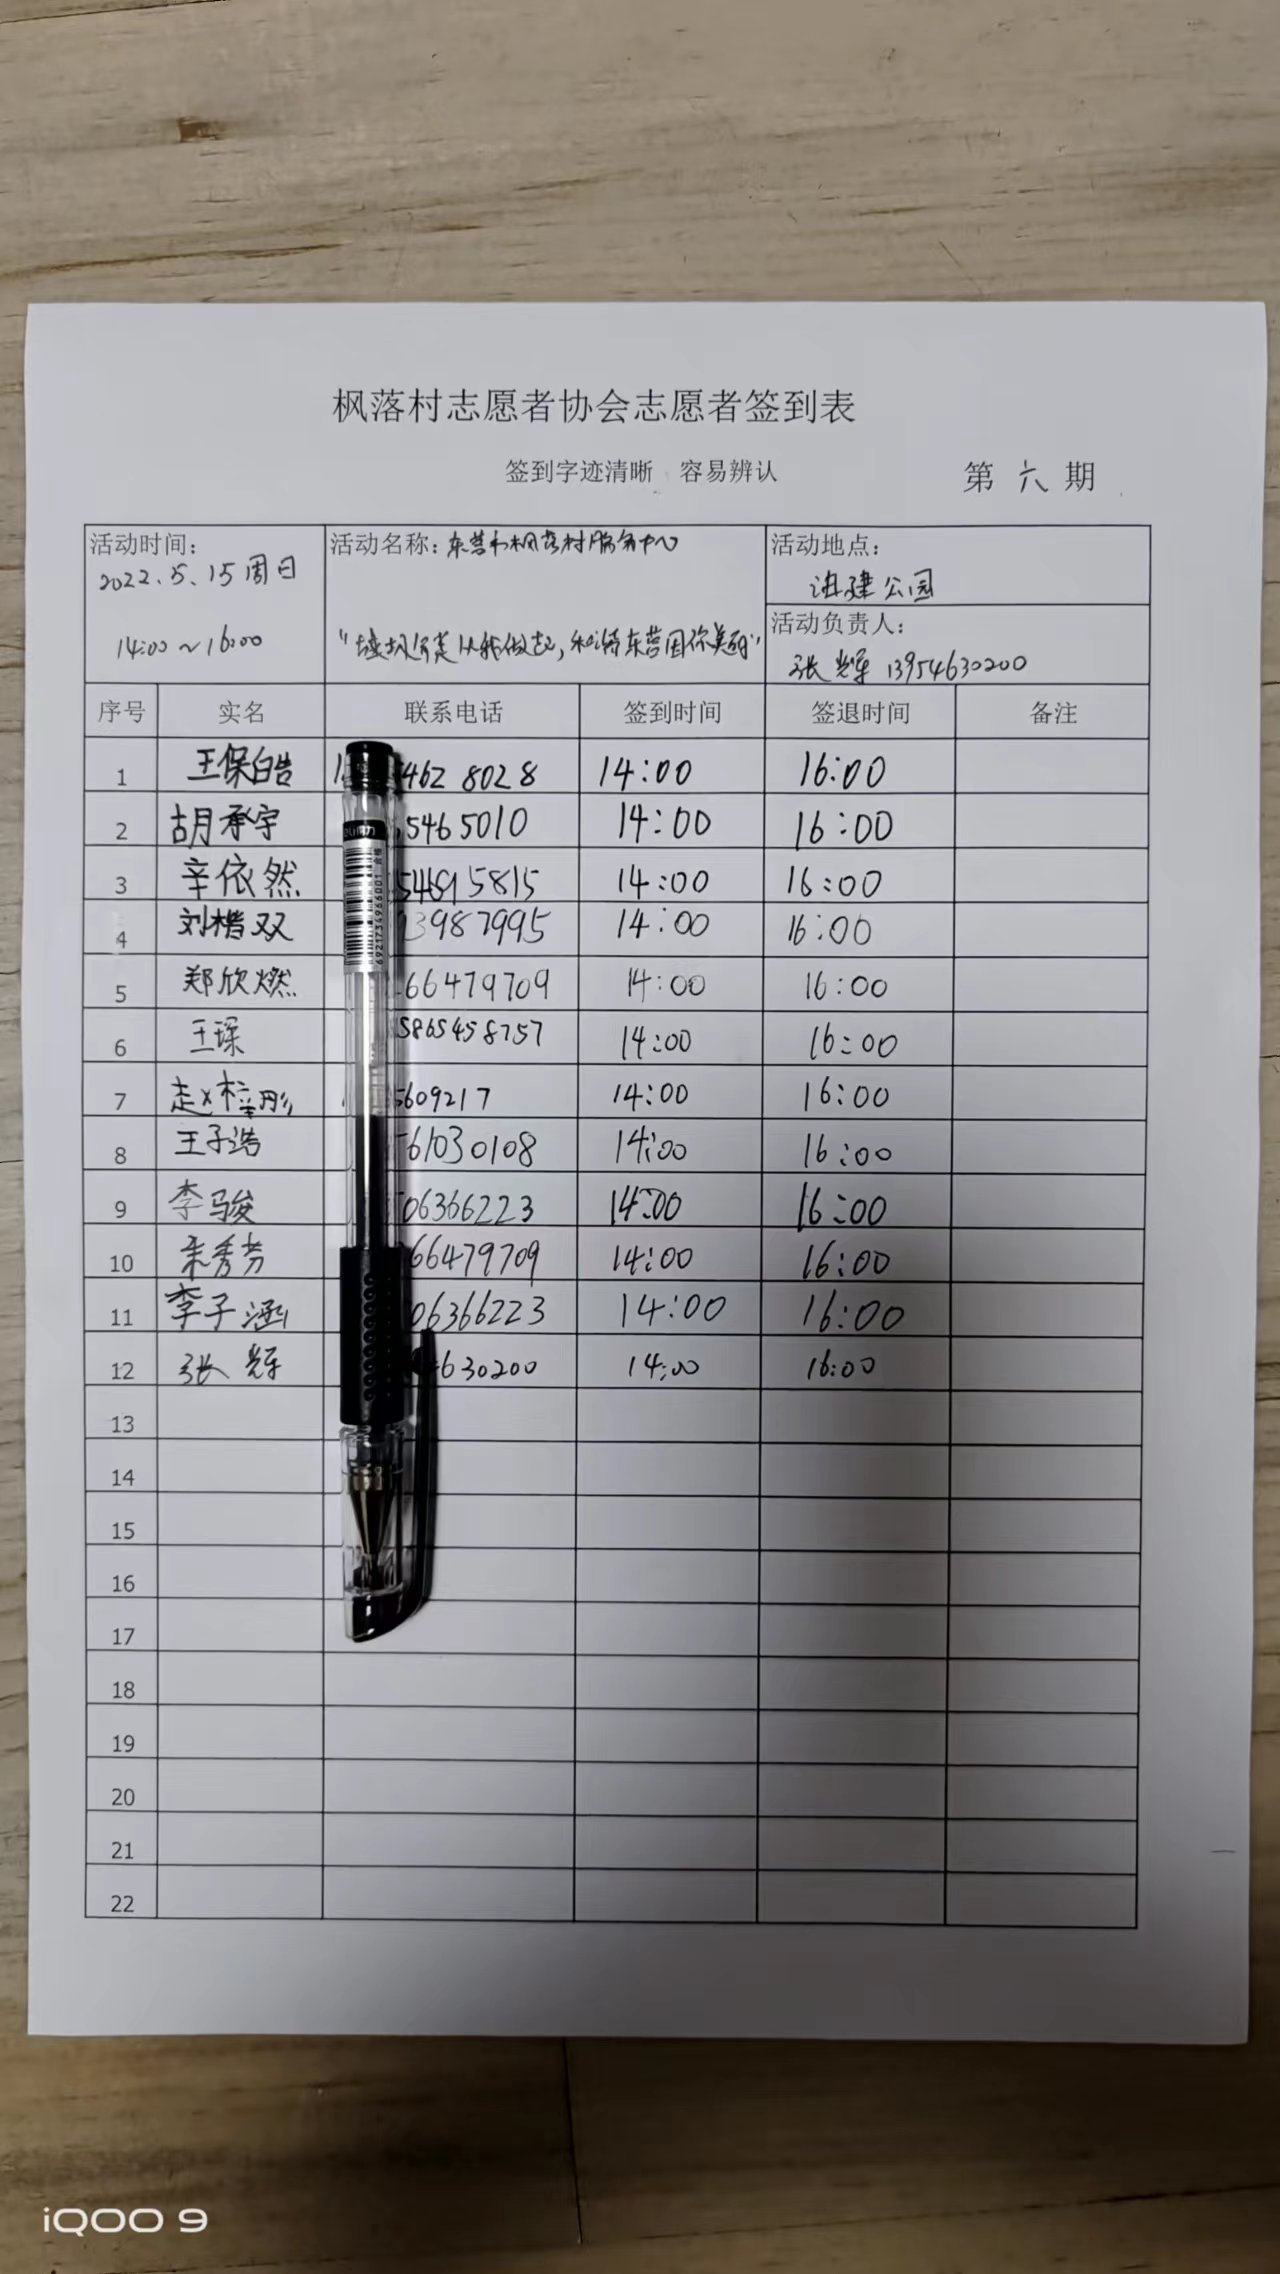 枫落村志愿者协会志愿者签到表
签到字迹清晰 容易辨认
第 六 期
活动时间: 2022.5.15周日
14:00~16:00
活动名称: 东营市枫落村服务中心
"垃圾分类从我做起,和谐东营因你美丽"
活动地点:
公园
活动负责人:
张辉 13954630200
序号 实名 联系电话 签到时间 签退时间 备注
1 王保皓 1 4628028 14:00 16:00
2 胡承宇 5465010 14:00 16:00
3 辛依然 546915815 14:00 16:00
4 刘楷双 3987995 14:00 16:00
5 郑欣燃 66479709 14:00 16:00
6 王琛 5865458757 14:00 16:00
7 赵梓彤 5609217 14:00 16:00
8 王子浩 61030108 14:00 16:00
9 李骏 06366223 14:00 16:00
10 秀芳 66479709 14:00 16:00
11 李子涵 06366223 14:00 16:00
12 张辉 4630200 14:00 16:00
13
14
15
16
17
18
19
20
21
22
deli得力
6921734966001
iQOO 9